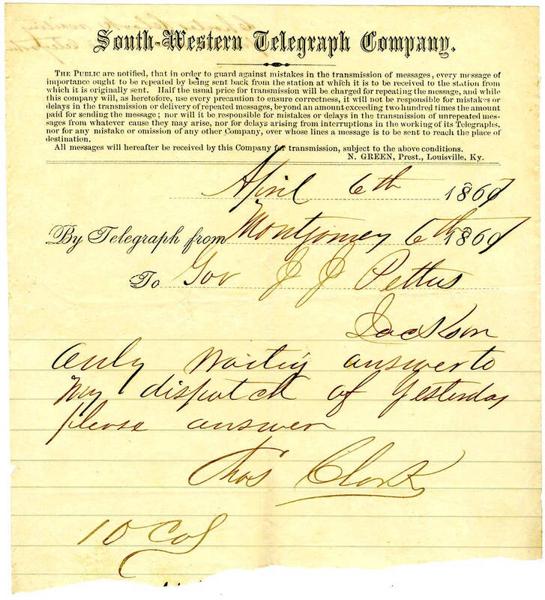 South-Western Telegraph Company.
THE PUBLIC are notified, that in order to guard against mistakes in the transmission of messages, every message of
importance ought to be repeated by being sent back from the station at which it is to be received to the station from
which it is originally sent. Half the usual price for transmission will be charged for repeating the message, and while
this company will, as heretofore, use every precaution to ensure correctness, it will not be responsible for mistakes or
delays in the transmission or delivery of repeated messages, beyond an amount exceeding two hundred times the amount
paid for sending the message; nor will it be responsible for mistakes or delays in the transmission of unrepeated messages
from whatever cause they may arise, nor for delays arising from interruptions in the working of its Telegraphs,
nor for any mistake or omission of any other Company, over whose lines a message is to be sent to reach the place of
destination.
All messages will hereafter be received by this Company for transmission, subject to the above conditions.
N. GREEN, Prest., Louisville, Ky.
April 6th 1861
By Telegraph from Montgomery 6th 1861
To Gov J J Pettus
Jackson
Only waiting answer to
my dispatch of yesterday
please answer
Thos Clark
10 Col